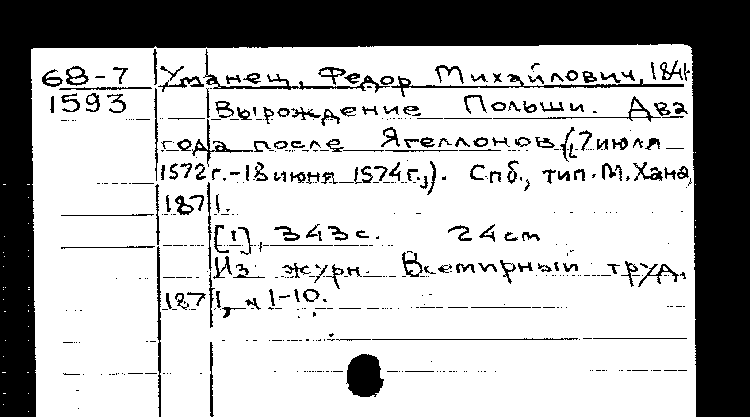 68-7 Уманец, Федор Михайлович, 1841-
1593 Вырождение Польши. Два
года после Ягеллонов (7 июля
1572 г.-18 июня 1574 г.). Спб., тип. М. Хана,
1871.
[1], 343 с. 24 cm
Из журн. Всемирный труд,
1871, № 1-10.